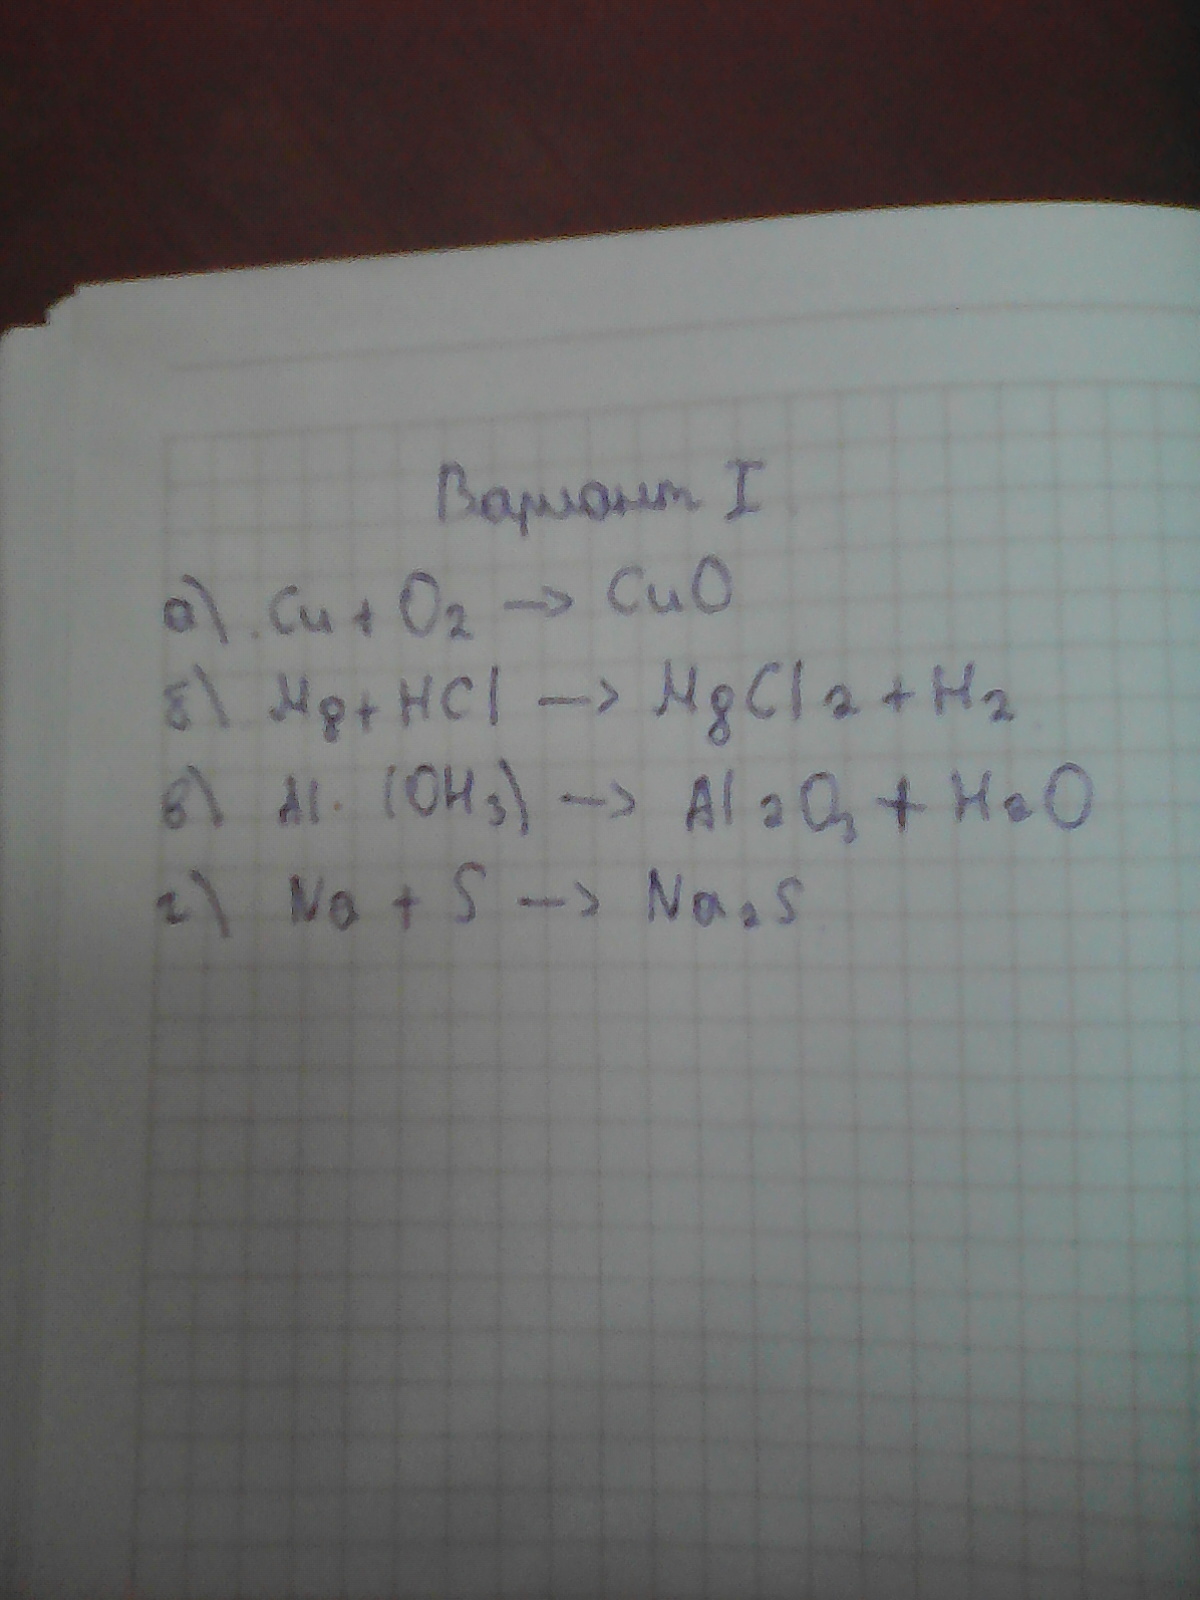 Вариант I
а) Cu + O₂ → CuO
б) Mg + HCl → MgCl₂ + H₂
в) Al (OH₃) → Al₂O₃ + H₂O
г) Na + S → Na₂S